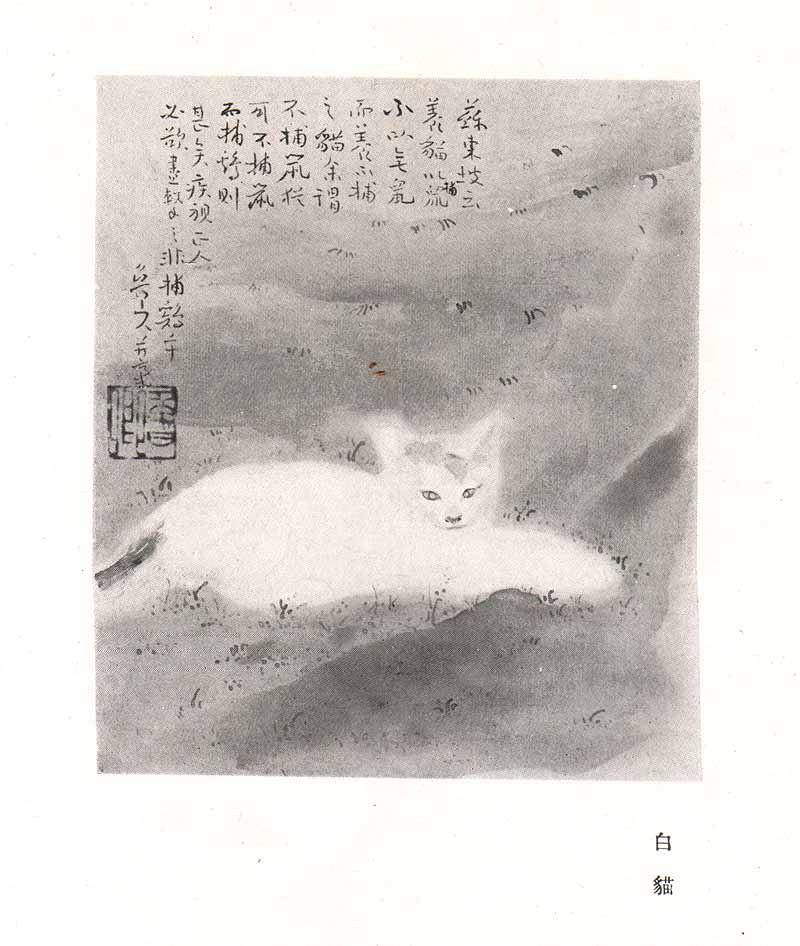 蘇東坡云
養貓以捕鼠
不以无鼠
而養不捕
之貓余謂
不捕鼠猶
可不捕鼠
而捕鷄則
甚矣疾視正人
必欲盡之非捕鷄乎
白貓